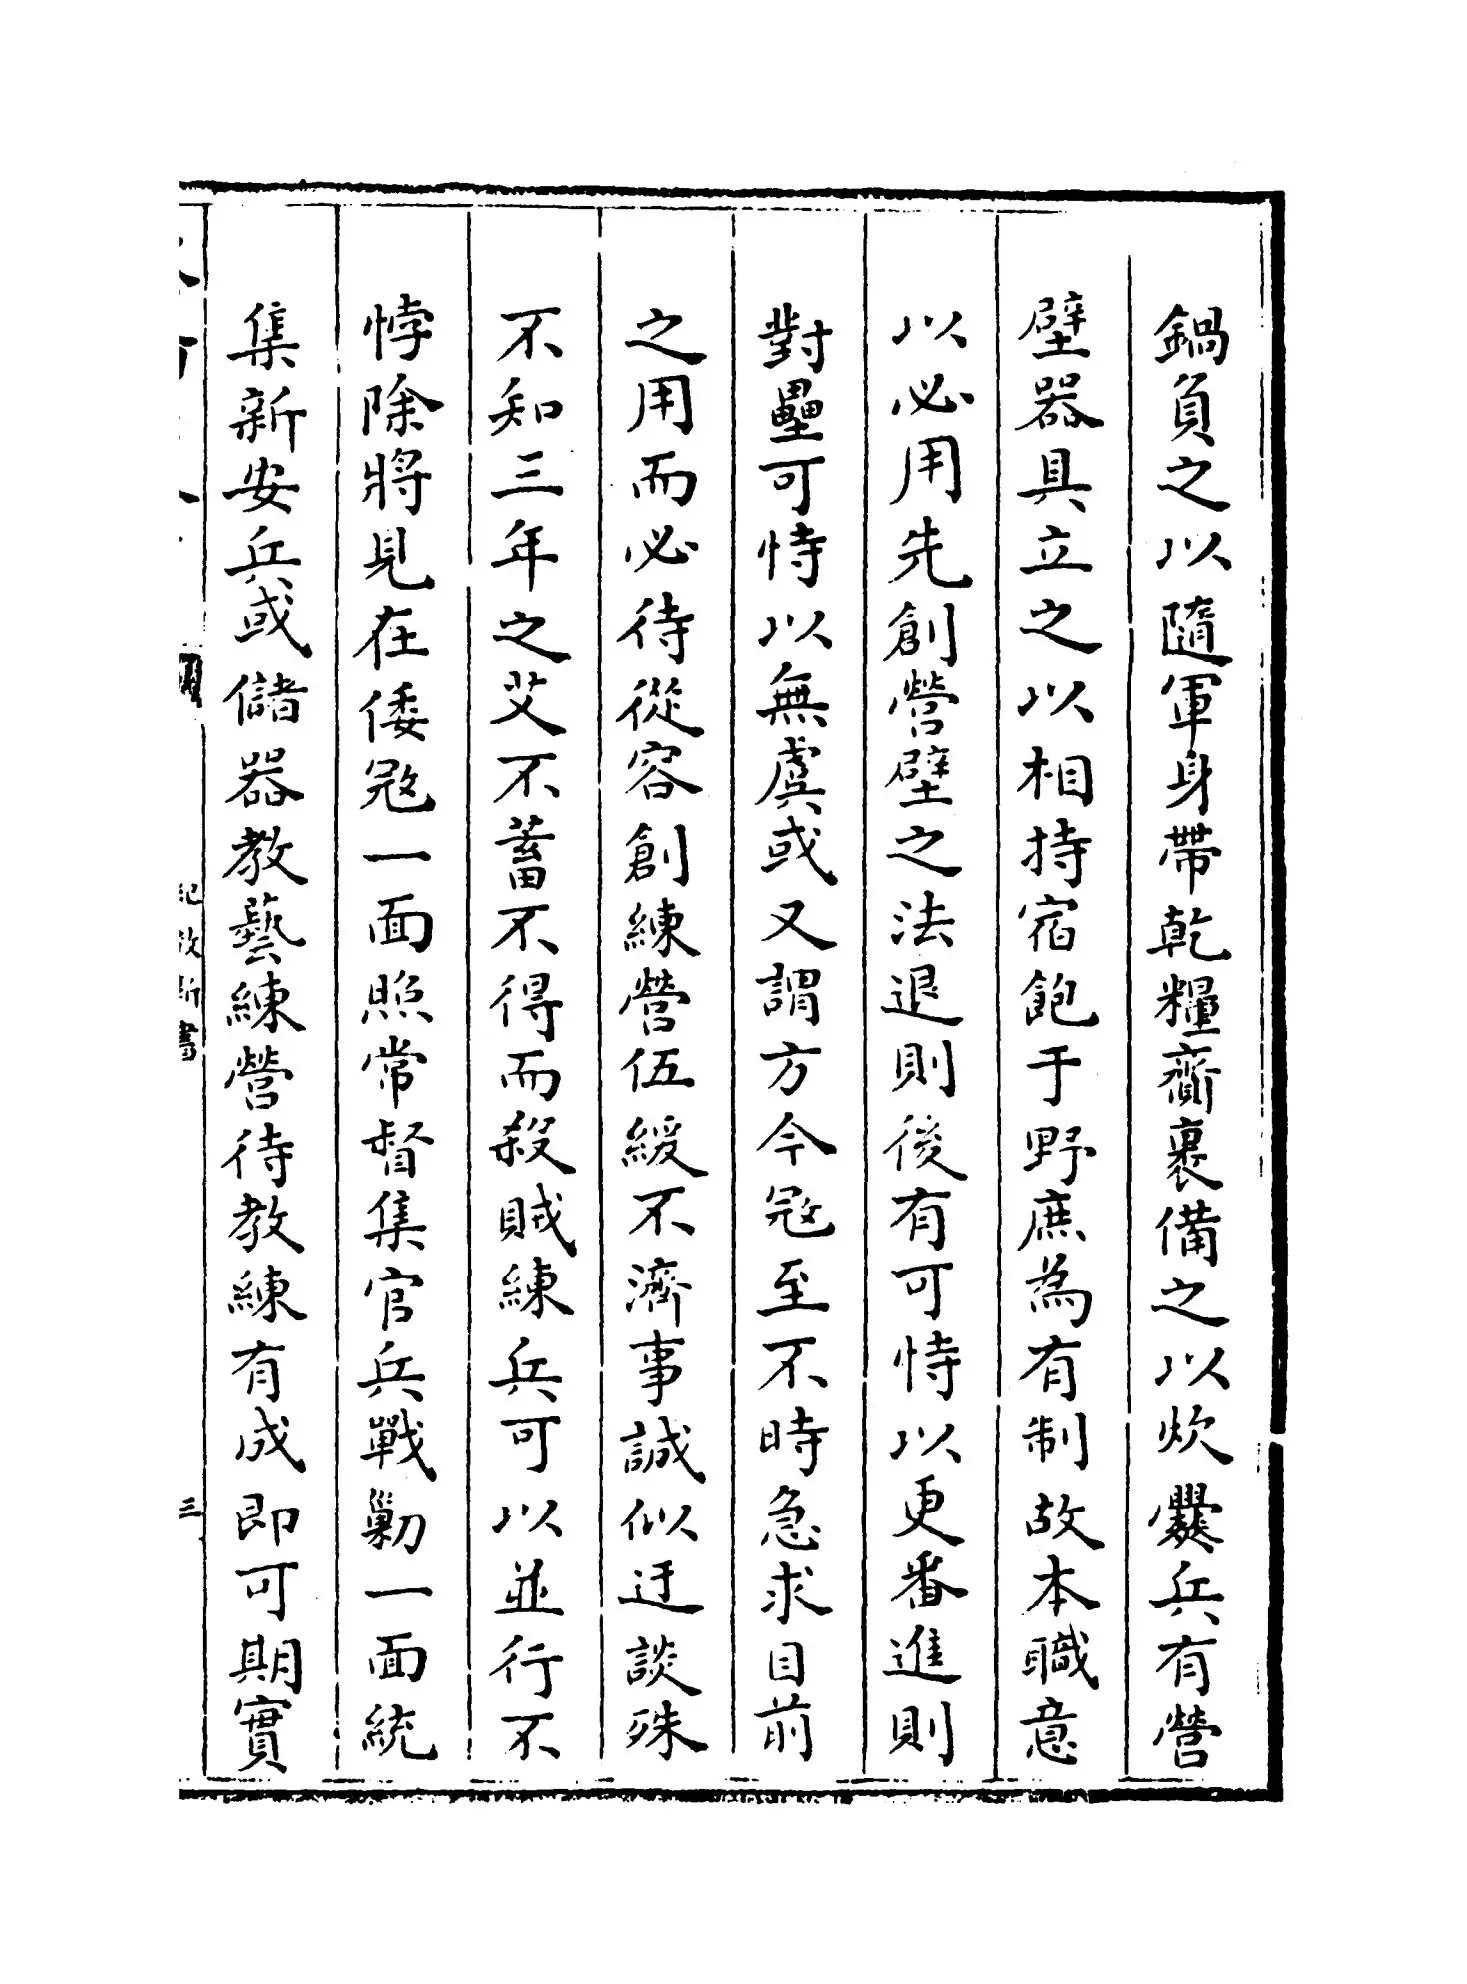 鍋負之以隨軍身帶乾糧齎裹備之以炊爨兵有營
壁器具立之以相持宿飽于野庶為有制故本職意
以必用先創營壁之法退則後有可恃以更番進則
對壘可恃以無虞或又謂方今冦至不時急求目前
之用而必待從容創練營伍緩不濟事誠似迂談殊
不知三年之艾不蓄不得而殺賊練兵可以並行不
悖除將見在倭冦一面照常督集官兵戰勦一面統
集新安兵或儲器教藝練營待教練有成即可期實
紀效新書
三